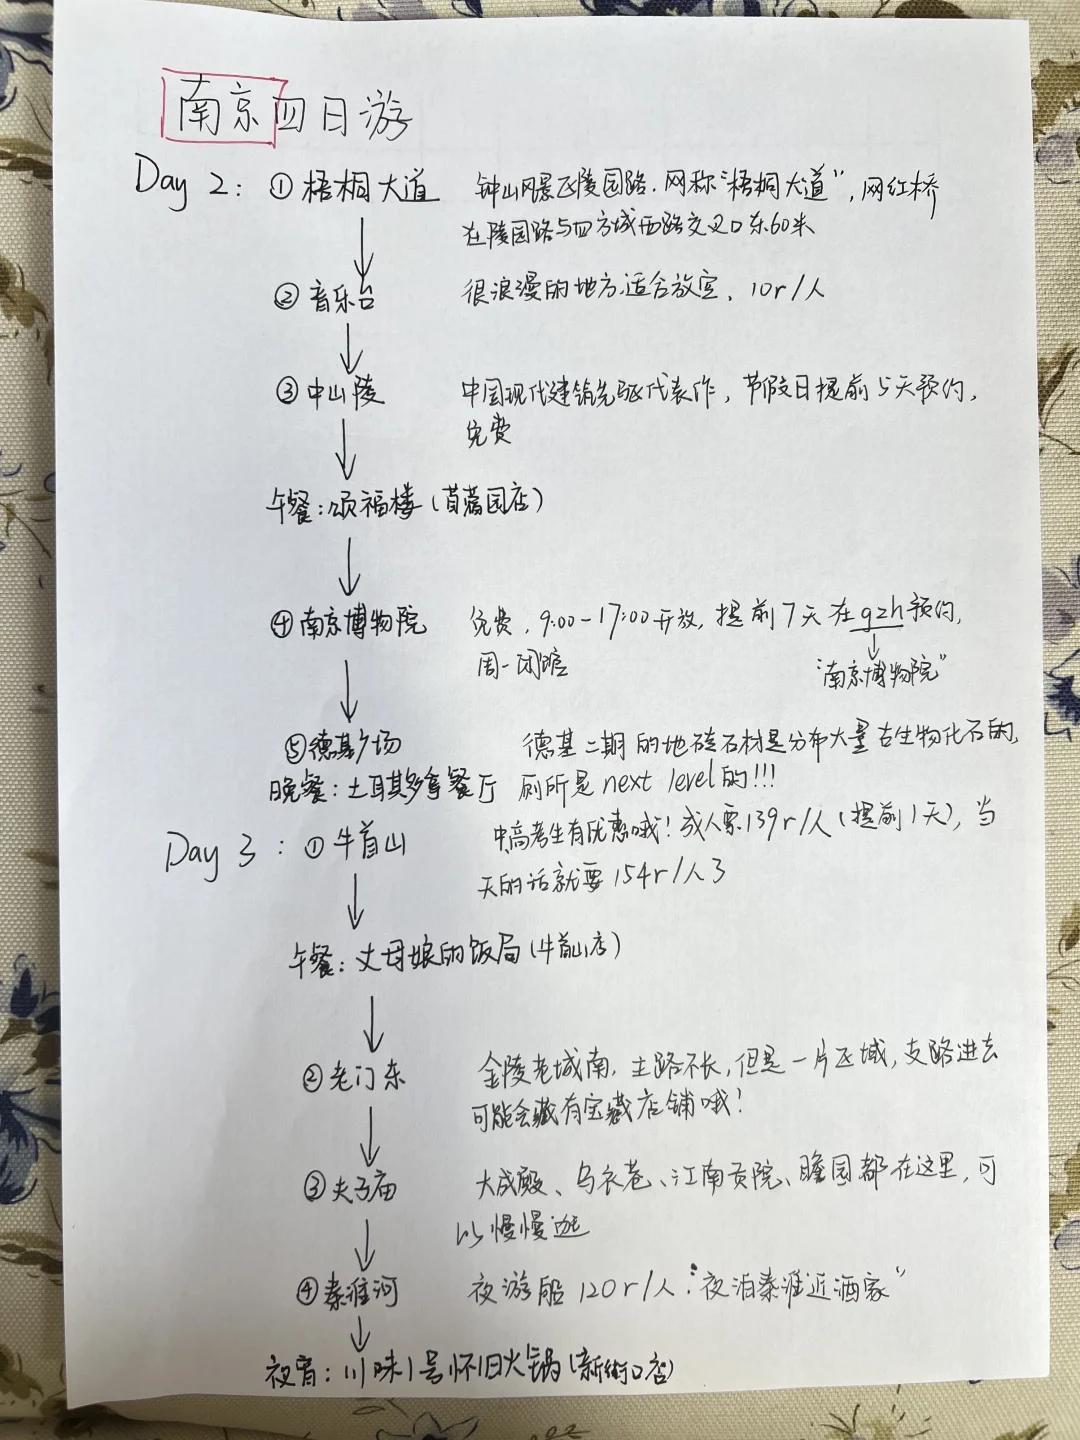 南京四日游
Day 2: ① 梧桐大道 钟山风景区陵园路,网称“梧桐大道”,网红桥
在陵园路与四方城西路交叉口东60米
↓
② 音乐台 很浪漫的地方,适合放空,10r/人
↓
③ 中山陵 中国现代建筑先驱代表作,节假日提前5天预约,
免费
↓
午餐:颂福楼(苜蓿园店)
↓
④ 南京博物院 免费,9:00-17:00开放,提前7天在gzh预约,
周一闭馆 ↓“南京博物院”
↓
⑤ 德基广场 德基二期的地砖石材是分布大量古生物化石的,
晚餐:土耳其多拿餐厅 厕所是next level的!!!
Day 3: ① 牛首山 中高考生有优惠哦!成人票139r/人(提前1天),当
天的话就要154r/人了
↓
午餐:丈母娘的饭局(牛首山店)
↓
② 老门东 金陵老城南,主路不长,但是一片区域,支路进去
可能会藏有宝藏店铺哦!
↓
③ 夫子庙 大成殿、乌衣巷、江南贡院、瞻园都在这里,可
以慢慢逛
↓
④ 秦淮河 夜游船120r/人:“夜泊秦淮近酒家”
↓
夜宵:川味1号怀旧火锅(新街口店)